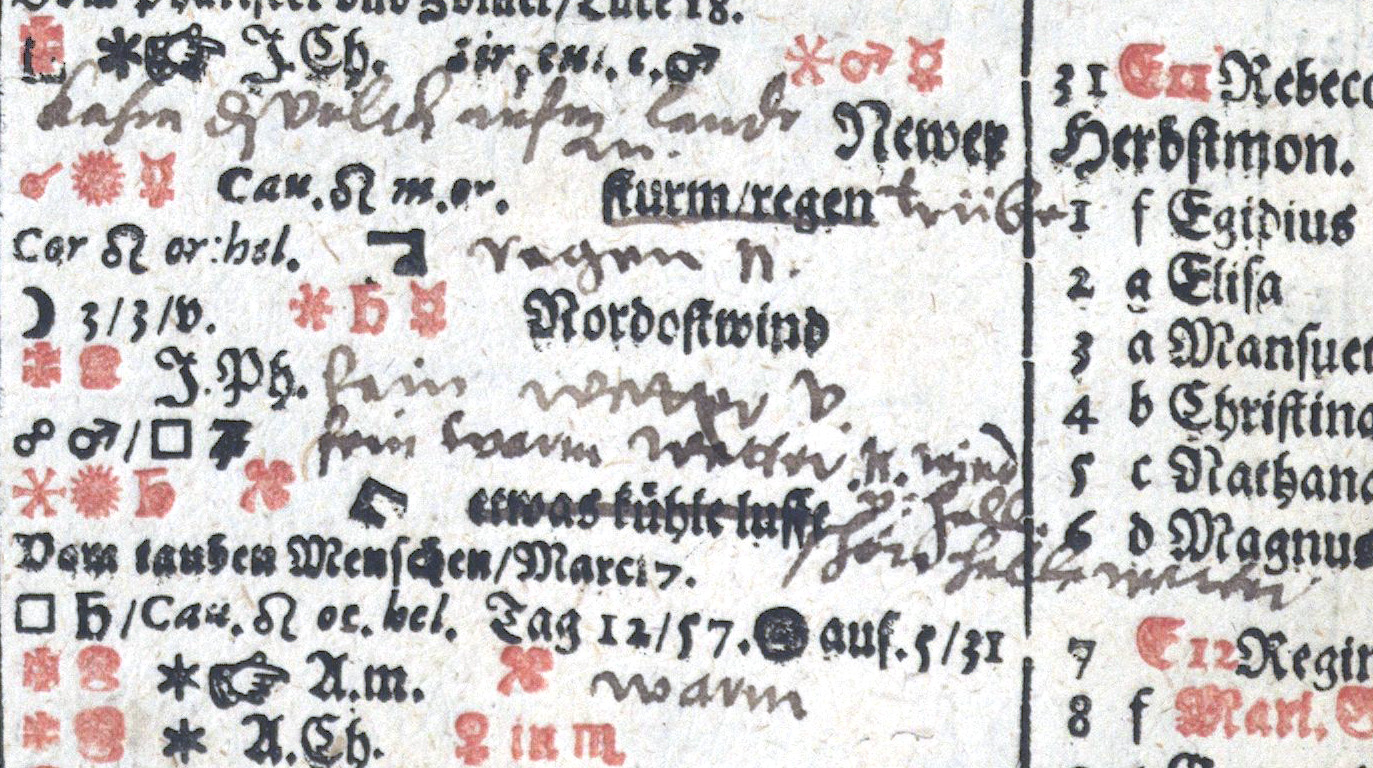 Vom Phariseer vnd Zölner/Luce 18.
✶ ☞ J.Ch. ♂ ✶ ♂ ☿
aufm lande
Newer
☌ ☉ ☿ Cau. ♌ m.or. sturm/regen trübe
Cor ♌ or:hel. regen n.
☽ 3/3/v. ✶ ♄ ☿ Nordostwind
J.Ph. fein wetter v
☍ ♂/□ ♃ fein warm wetter n. wind
✶ ☉ ♄ etwas kühle lufft v. hell.
Vom tauben Menschen/Marci 7. schön helle wetter
□ ♄/Cau. ♌ oc. hel. Tag 12/57. ☉ auf. 5/31
✶ ☞ A.m. warm
✶ A.Ch. ♀ in ♏
31 E11 Rebecc
Herbstmon.
1 f Egidius
2 g Elisa
3 a Mansuet
4 b Christina
5 c Nathana
6 d Magnus
7 E12 Regin
8 f Mari. G